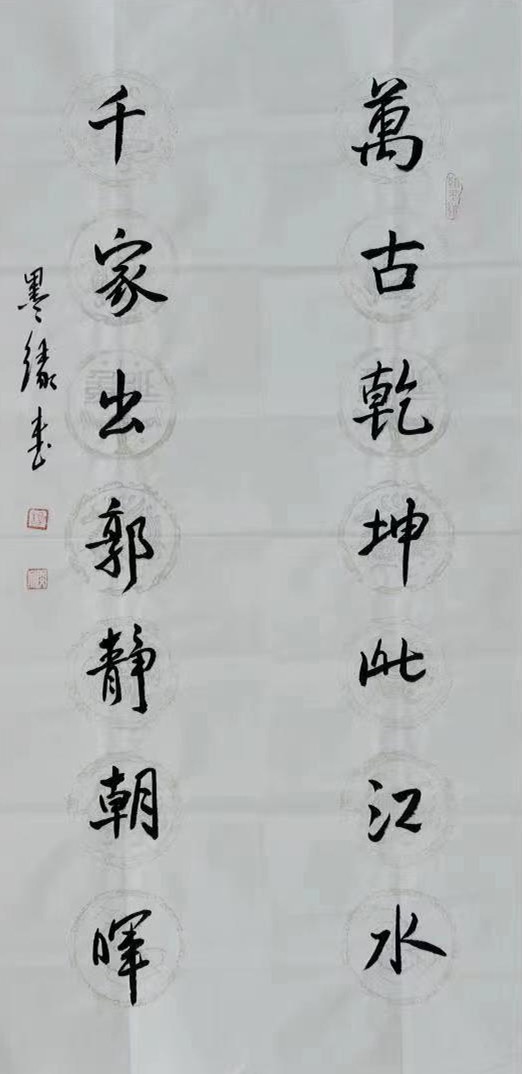 萬古乾坤此江水
千家出郭靜朝暉
墨緣書